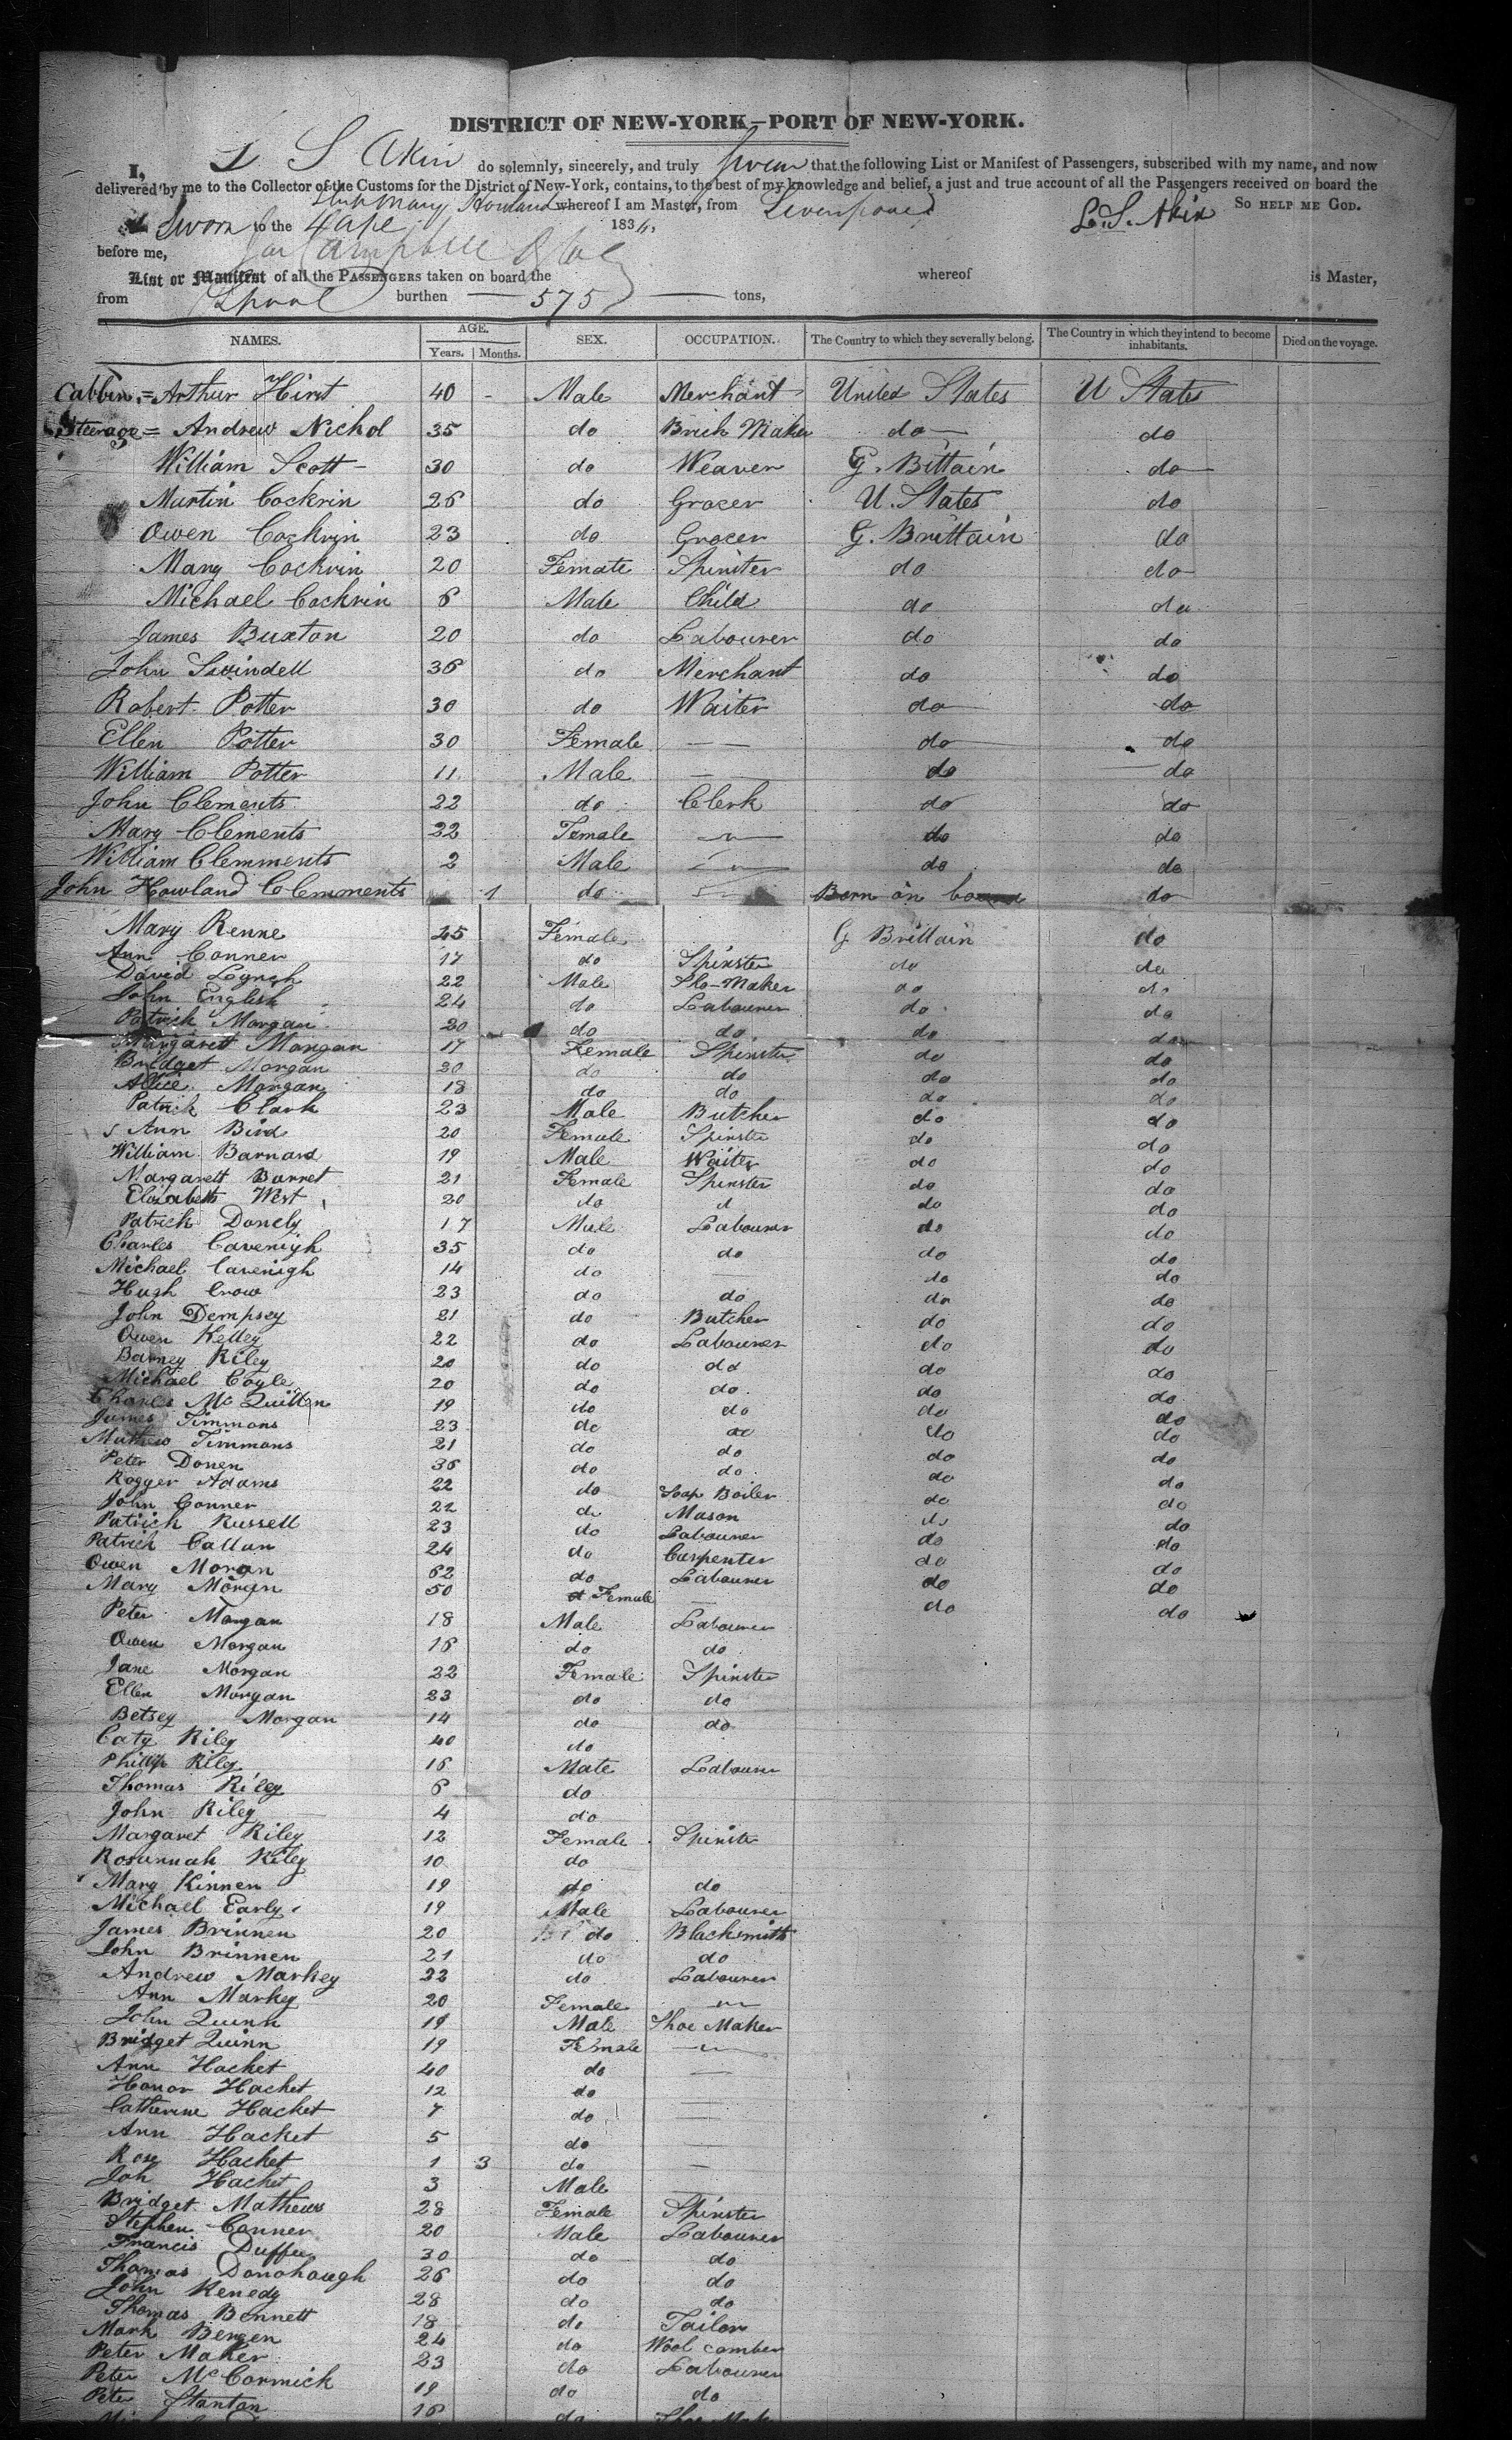 DISTRICT OF NEW-YORK—PORT OF NEW-YORK.
I, L S Akin do solemnly, sincerely, and truly swear that the following List or Manifest of Passengers, subscribed with my name, and now
delivered by me to the Collector of the Customs for the District of New-York, contains, to the best of my knowledge and belief, a just and true account of all the Passengers received on board the
Ship Mary Howland whereof I am Master, from Liverpool So HELP ME GOD.
Sworn to the 4 1834. L. S. Akin
before me,
List or Manifest of all the PASSENGERS taken on board the whereof is Master,
from Lpool burthen — 575 — tons,
NAMES. AGE. Years. Months. SEX. OCCUPATION. The Country to which they severally belong. The Country in which they intend to become inhabitants. Died on the voyage.
Cabbin = Arthur Hirst 40 - Male Merchant United States U States
Steerage = Andrew Nichol 35 do Brick Maker do do
William Scott 30 do Weaver G. Bittain do
Martin Cockrin 26 do Grocer U. States do
Owen Cockrin 23 do Grocer G. Brittain do
Mary Cockrin 20 Female Spinster do do
Michael Cockrin 6 Male Child do do
James Buxton 20 do Labourer do do
John Swindell 36 do Merchant do do
Robert Potter 30 do Waiter do do
Ellen Potter 30 Female do do
William Potter 11 Male do do
John Clements 22 do Clerk do do
Mary Clements 22 Female do do
William Clemments 2 Male do do
John Howland Clemments 1 do Born on board do
Mary Renne 25 Female G Brittain do
Ann Conner 17 do Spinster do do
David Lynch 22 Male Sho-Maker do do
John English 24 do Labourer do do
Patrick Morgan 20 do do do do
Margarett Morgan 17 Female Spinster do do
Bridget Morgan 20 do do do do
Alice Morgan 18 do do do do
Patrick Clark 23 Male Butcher do do
Ann Bird 20 Female Spinster do do
William Barnard 19 Male Waiter do do
Margarett Barret 21 Female Spinster do do
Elizabeth West 20 do d do do
Patrick Donely 17 Male Labourer do do
Charles Cavenigh 35 do do do do
Michael Cavenigh 14 do — do do
Hugh Crow 23 do do do do
John Dempsey 21 do Butcher do do
Owen Kelley 22 do Labourer do do
Barney Riley 20 do do do do
Michael Coyle 20 do do do do
Charles McQuillan 19 do do do do
James Timmons 23 do do do do
Mathew Timmons 21 do do do do
Peter Donen 36 do do do do
Rogger Adams 22 do Soap Boiler do do
John Conner 22 do Mason do do
Patrick Russell 23 do Labourer do do
Patrick Callan 24 do Carpenter do do
Owen Morgan 62 do Labourer do do
Mary Morgan 50 Female do do
Peter Morgan 18 Male Labourer
Owen Morgan 16 do do
Jane Morgan 22 Female Spinster
Ellen Morgan 23 do do
Betsey Morgan 14 do do
Caty Riley 40 do
Phillip Riley 16 Male Labourer
Thomas Riley 6 do
John Riley 4 do
Margaret Riley 12 Female Spinster
Rosannah Riley 10 do
Mary Kinnen 19 do do
Michael Early 19 Male Labourer
James Brinnen 20 do Blacksmith
John Brinnen 21 do do
Andrew Markey 22 do Labourer
Ann Markey 20 Female
John Quinn 19 Male Shoe Maker
Bridget Quinn 19 Female
Ann Hacket 40 do
Honor Hacket 12 do
Catherine Hacket 7 do
Ann Hacket 5 do
Rose Hacket 1 3 do
Joh Hacket 3 Male
Bridget Mathews 28 Female Spinster
Stephen Conner 20 Male Labourer
Francis Duffee 30 do do
Thomas Donohough 26 do do
John Kenedy 28 do do
Thomas Bennett 18 do Tailor
Mark Bergen 24 do Wool comber
Peter Maker 23 do Labourer
Peter McCormick 19 do do
Peter Stanton 16 do